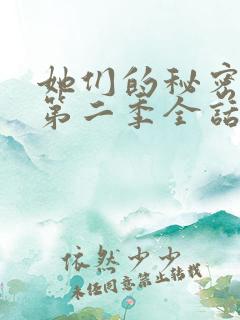 她们的秘密
第二季全話
依然少少
未经同意禁止转载